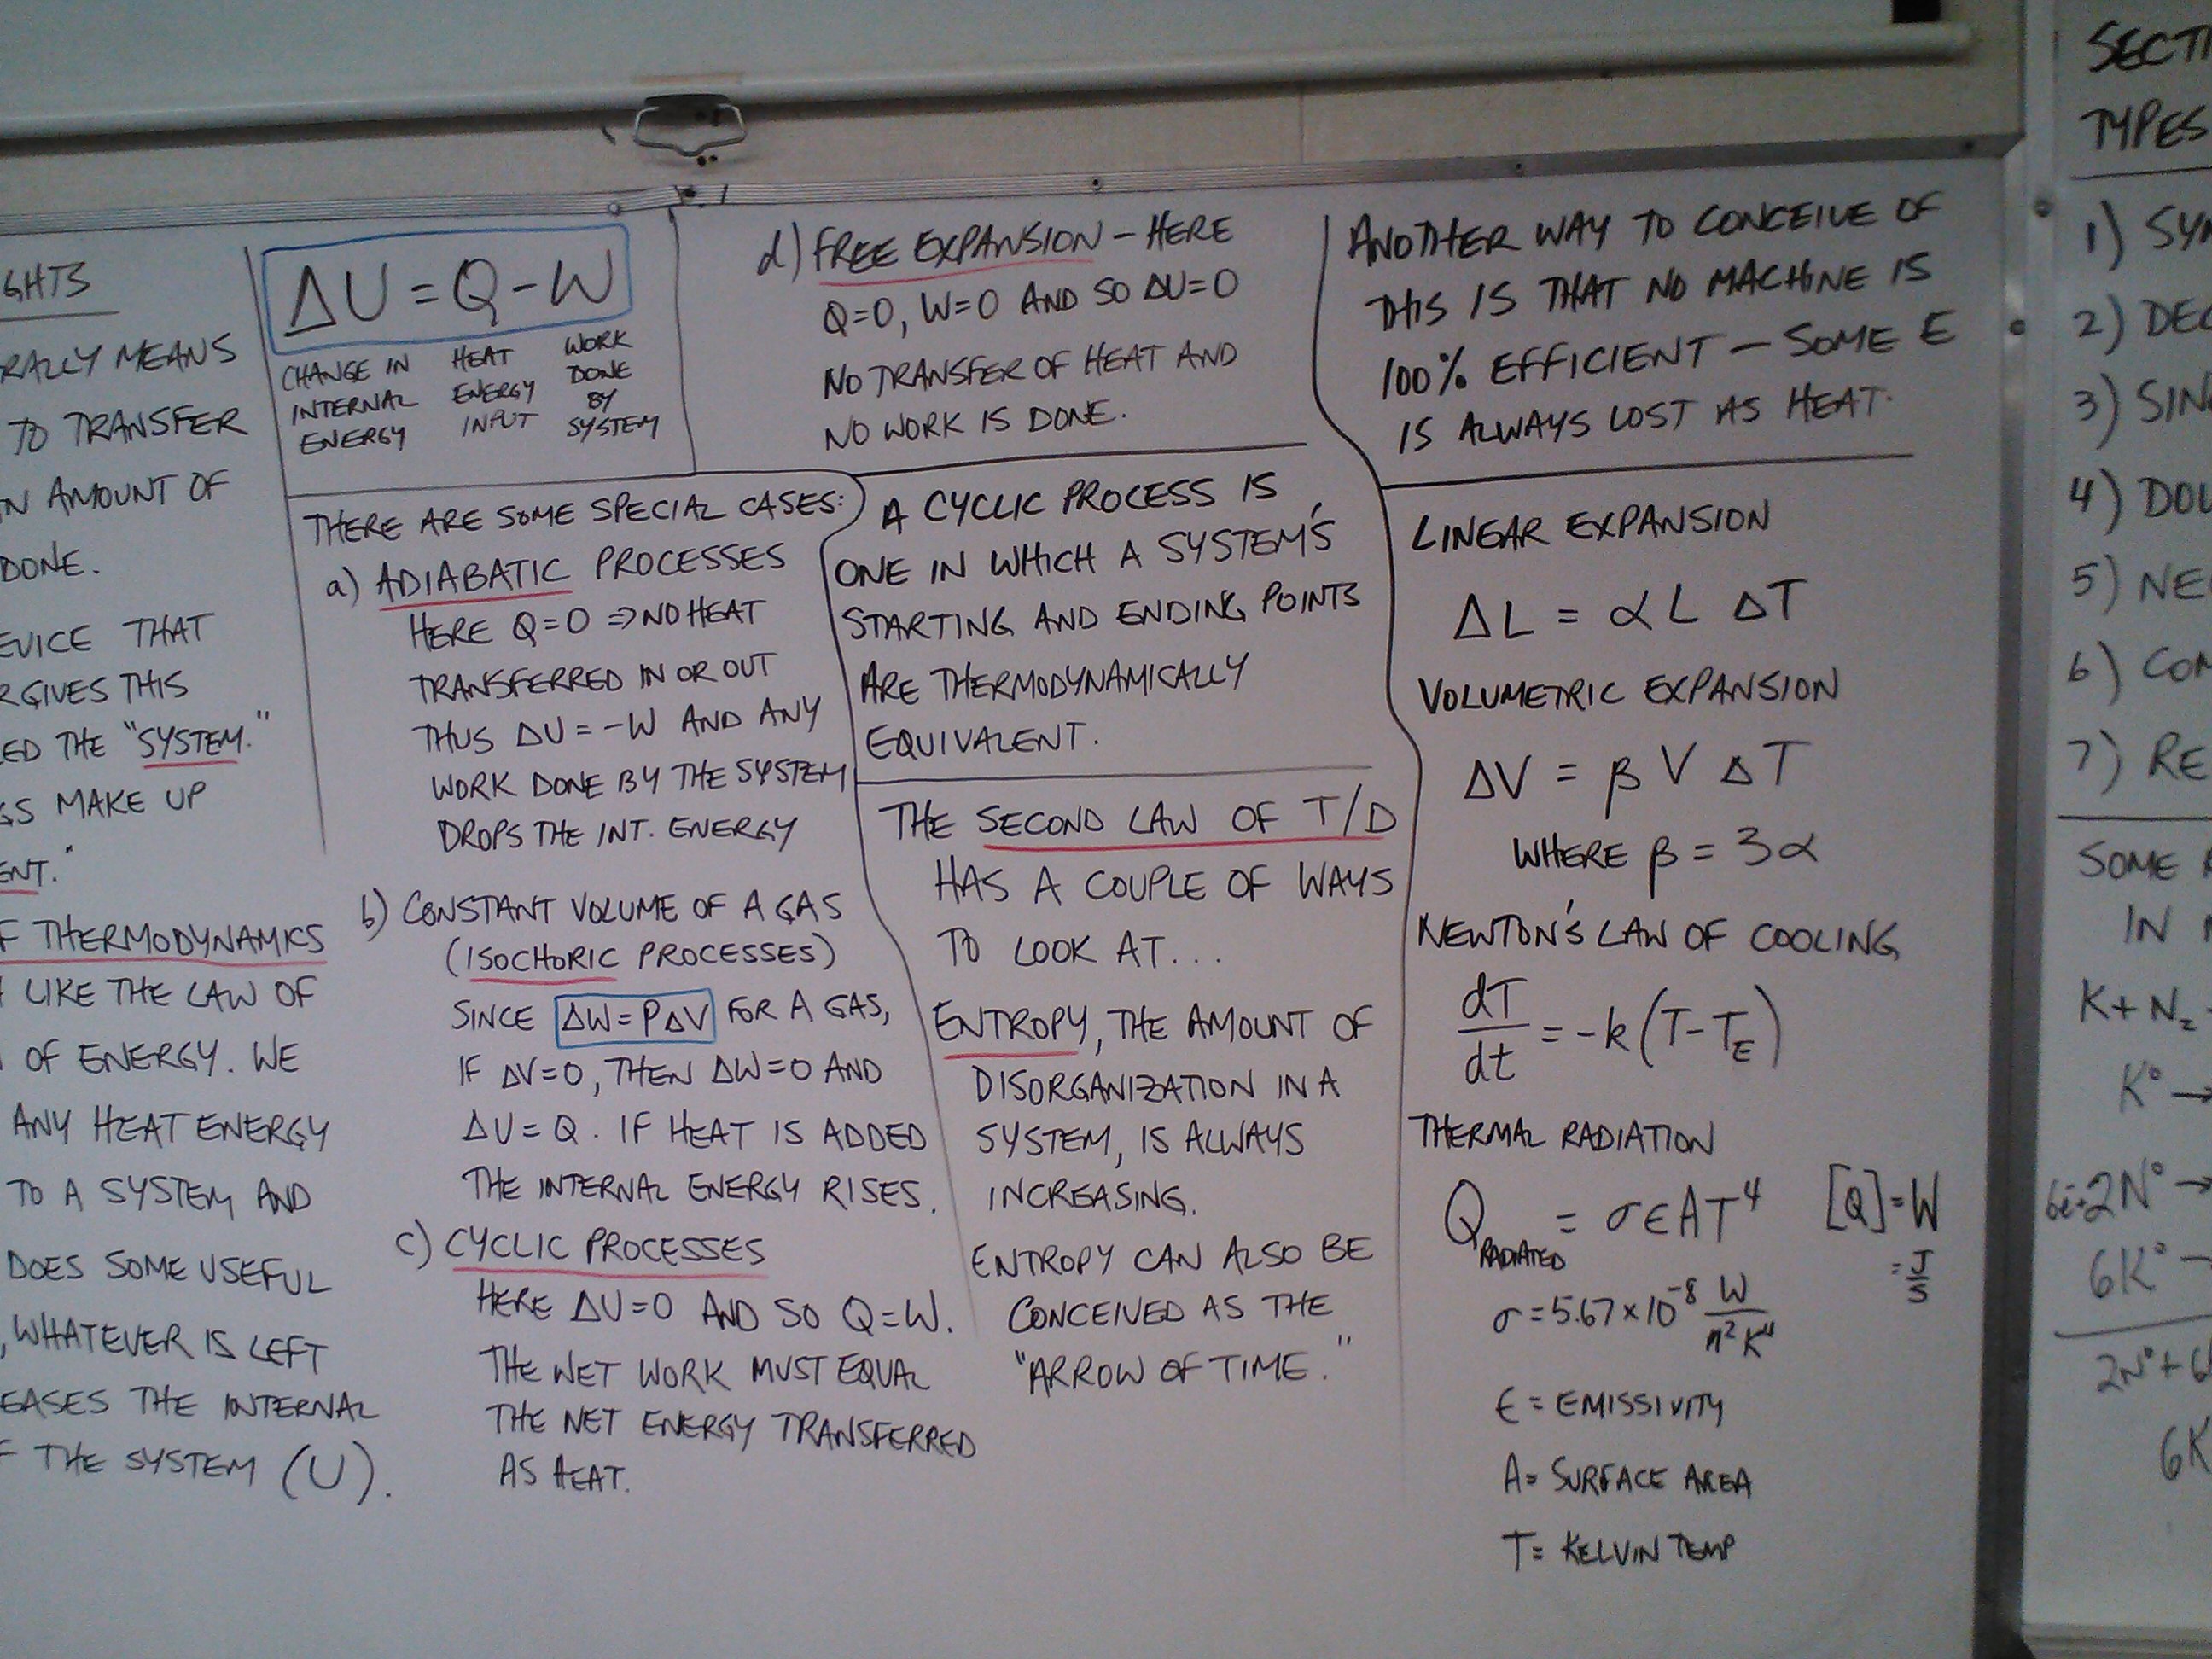 GHTS
RALLY MEANS
TO TRANSFER
N AMOUNT OF
DONE.
EVICE THAT
R GIVES THIS
ED THE "SYSTEM."
GS MAKE UP
ENT."
F THERMODYNAMICS
LIKE THE LAW OF
OF ENERGY. WE
ANY HEAT ENERGY
TO A SYSTEM AND
DOES SOME USEFUL
, WHATEVER IS LEFT
EASES THE INTERNAL
F THE SYSTEM (U).
ΔU = Q - W
CHANGE IN INTERNAL ENERGY
HEAT ENERGY INPUT
WORK DONE BY SYSTEM
THERE ARE SOME SPECIAL CASES:
a) ADIABATIC PROCESSES
HERE Q=0 ⇒ NO HEAT
TRANSFERRED IN OR OUT
THUS ΔU = -W AND ANY
WORK DONE BY THE SYSTEM
DROPS THE INT. ENERGY
b) CONSTANT VOLUME OF A GAS
(ISOCHORIC PROCESSES)
SINCE ΔW=PΔV FOR A GAS,
IF ΔV=0, THEN ΔW=0 AND
ΔU=Q. IF HEAT IS ADDED
THE INTERNAL ENERGY RISES.
c) CYCLIC PROCESSES
HERE ΔU=0 AND SO Q=W.
THE NET WORK MUST EQUAL
THE NET ENERGY TRANSFERRED
AS HEAT.
d) FREE EXPANSION - HERE
Q=0, W=0 AND SO ΔU=0
NO TRANSFER OF HEAT AND
NO WORK IS DONE.
A CYCLIC PROCESS IS
ONE IN WHICH A SYSTEM'S
STARTING AND ENDING POINTS
ARE THERMODYNAMICALLY
EQUIVALENT.
THE SECOND LAW OF T/D
HAS A COUPLE OF WAYS
TO LOOK AT...
ENTROPY, THE AMOUNT OF
DISORGANIZATION IN A
SYSTEM, IS ALWAYS
INCREASING.
ENTROPY CAN ALSO BE
CONCEIVED AS THE
"ARROW OF TIME."
ANOTHER WAY TO CONCEIVE OF
THIS IS THAT NO MACHINE IS
100% EFFICIENT - SOME E
IS ALWAYS LOST AS HEAT.
LINEAR EXPANSION
ΔL = αL ΔT
VOLUMETRIC EXPANSION
ΔV = β V ΔT
WHERE β = 3α
NEWTON'S LAW OF COOLING
dT/dt = -k(T-T_E)
THERMAL RADIATION
Q_RADIATED = σϵAT⁴ [Q]=W
= J/S
σ = 5.67×10⁻⁸ W/m²K⁴
ϵ = EMISSIVITY
A= SURFACE AREA
T= KELVIN TEMP
SECTI
TYPES
1) SYN
2) DEC
3) SIN
4) DOU
5) NE
6) COM
7) RE
SOME
IN
K + N₂
K° →
6e⁻+2N° →
6K°
2N°+6
6K